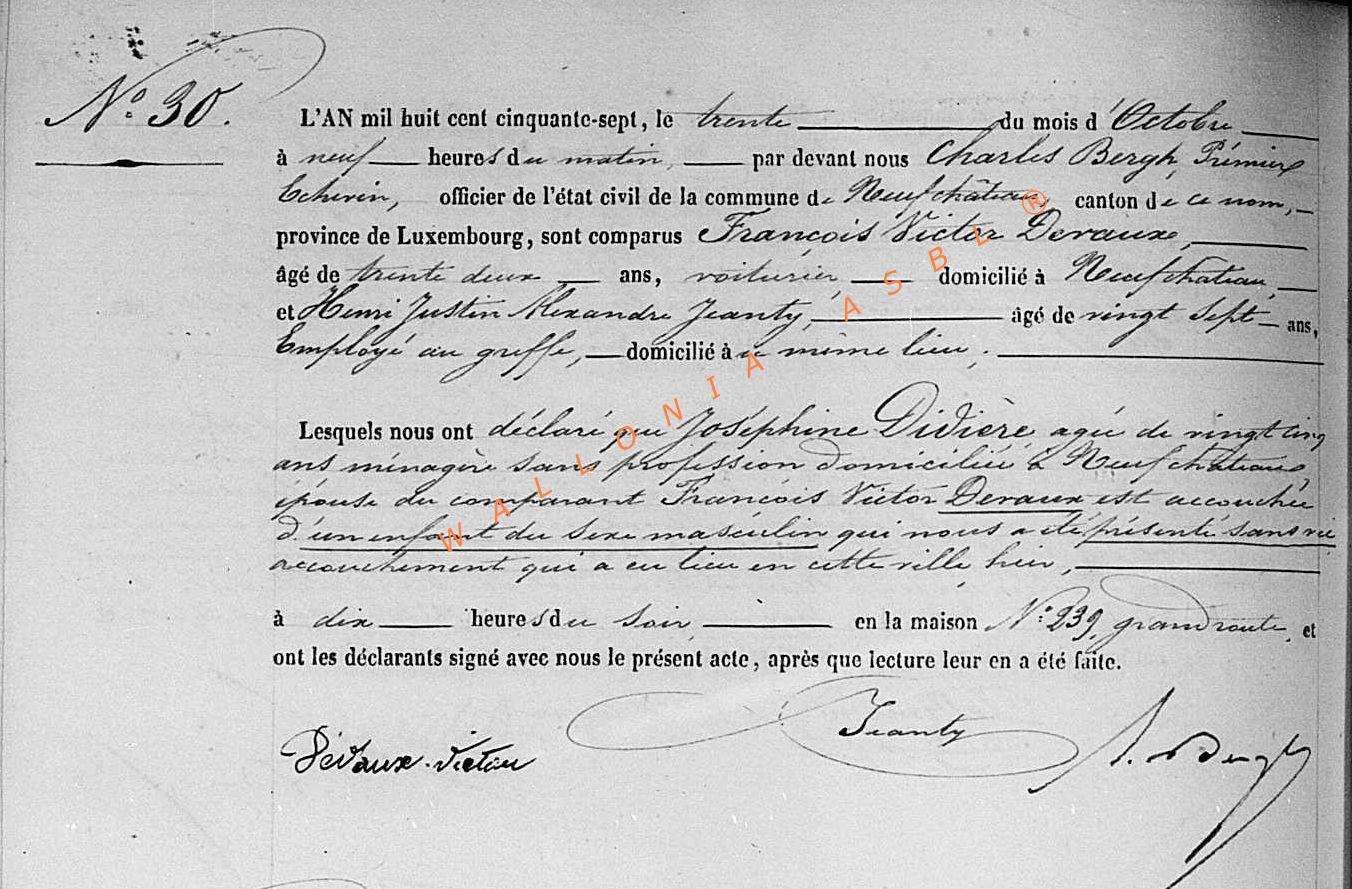 N.º 30.
L'AN mil huit cent cinquante-sept, le trente du mois d'Octobre
à neuf heures du matin, par devant nous Charles Bergh, Prémier
Echevin, officier de l'état civil de la commune de Neufchâteau, canton de ce nom,
province de Luxembourg, sont comparus François Victor Devaux,
âgé de trente deux ans, voiturier, domicilié à Neufchateau,
et Henri Justin Alexandre Jeanty, âgé de vingt sept ans,
Employé au greffe, domicilié à u même lieu.
Lesquels nous ont déclaré que Joséphine Didière agée de vingt cinq
ans ménagère sans profession domiciliée à Neufchateau,
épouse du comparant François Victor Devaux est accouchée
d'un enfant du sexe masculin qui nous a été présenté sans vie
accouchement qui a eu lieu en cette ville hier,
à dix heures du soir, en la maison N.º 239, grand route, et
ont les déclarants signé avec nous le présent acte, après que lecture leur en a été faite.
Dévaux Victor Jeanty Bergh
WALLONIA ASBL ®